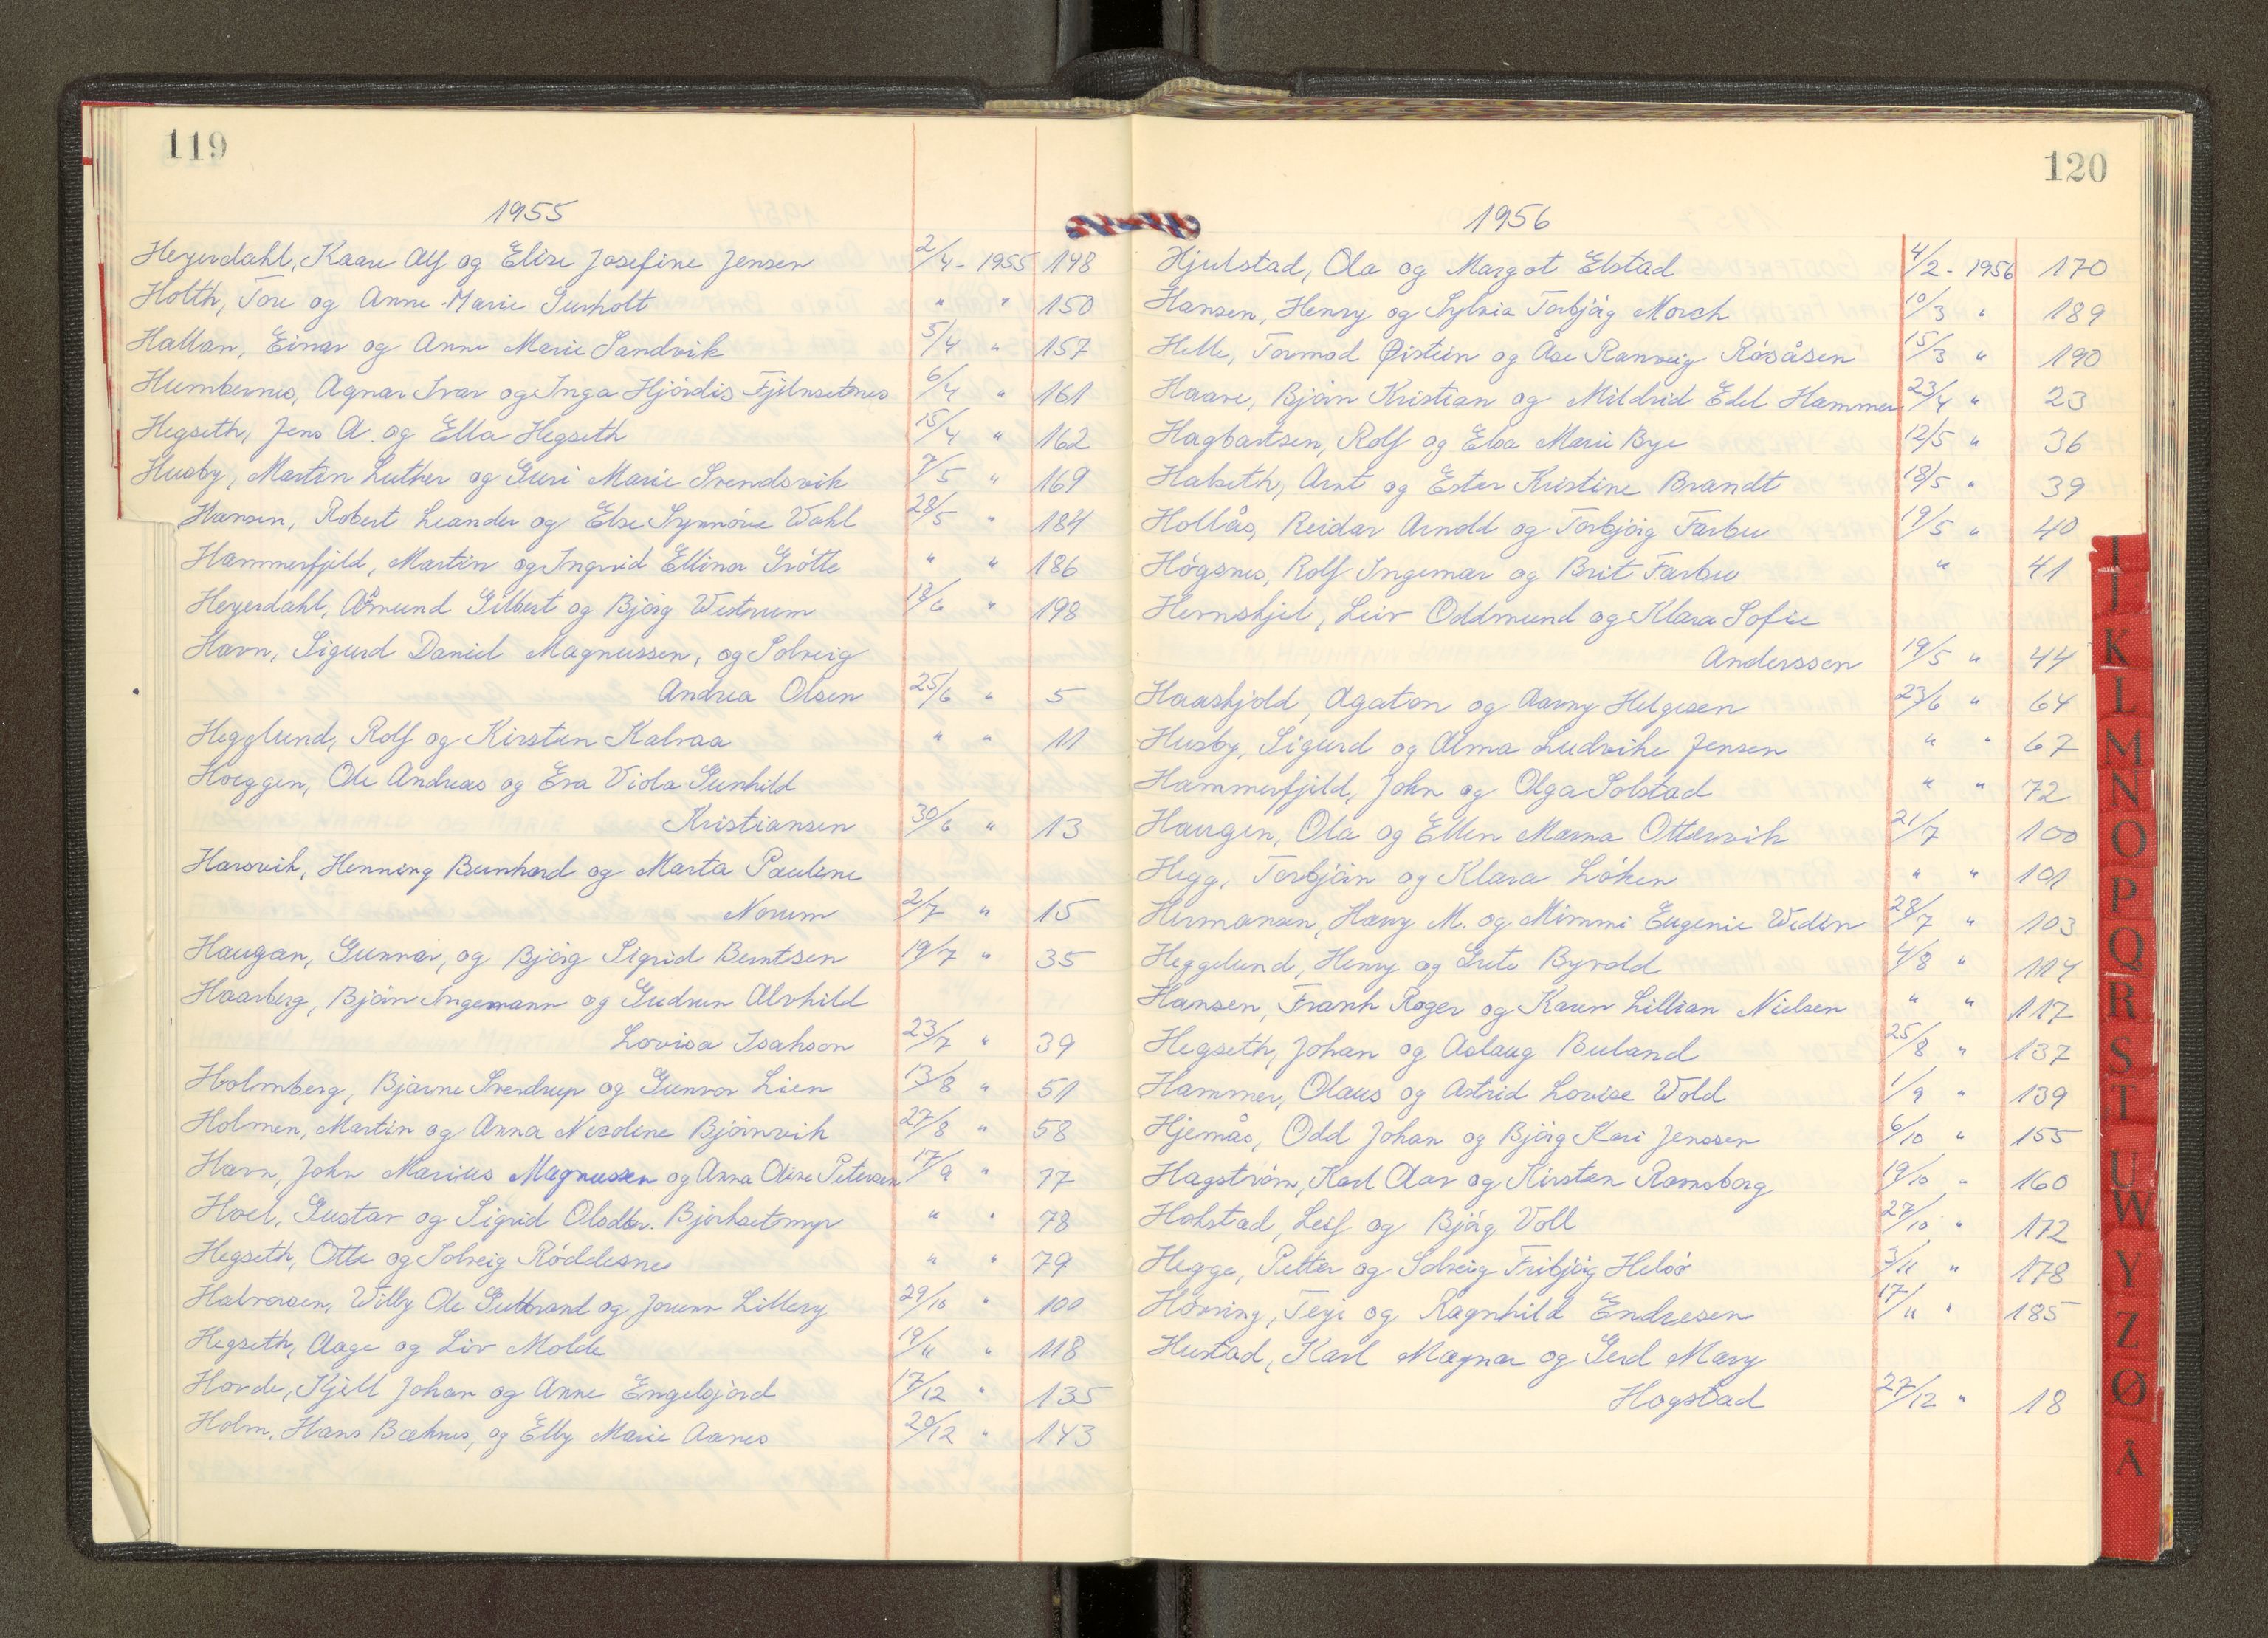 119
1955
Heyerdahl, Kaare Alf og Elise Josefine Jensen 2/4 - 1955 148
Holth, Tore og Anne-Marie Gurholt " " 150
Hallan, Einar og Anne Marie Sandvik 5/4 " 157
Humbernes, Agnar Ivar og Inga Hjördis Fjölnsetnes 6/4 " 161
Hegseth, Jens A. og Ella Hegseth 15/4 " 162
Husby, Martin Luther og Guri Marie Svendsvik 7/5 " 169
Hansen, Robert Leander og Else Synnöve Wahl 28/5 " 184
Hammerfjeld, Martin og Ingrid Ellinor Grötte " " 186
Heyerdahl, Åmund Gilbert og Björg Westrum 18/6 " 198
Havn, Sigurd Daniel Magnussen, og Solveig
Andrea Olsen 25/6 " 5
Hegglund, Rolf og Kirsten Kalvaa " " 11
Hoeggen, Ole Andreas og Eva Viola Gunhild
Kristiansen 30/6 " 13
Harsvik, Henning Bernhard og Marta Pauline
Norum 2/7 " 15
Haugan, Gunnar, og Björg Sigrid Berntsen 19/7 " 35
Haarberg, Björn Ingemann og Gudrun Alvhild
Lovisa Isakson 23/7 " 39
Holmberg, Bjarne Sverdrup og Gunvor Lien 13/8 " 51
Holmen, Martin og Anna Nicoline Björnvik 27/8 " 58
Havn, John Marius Magnussen og Anna Oline Petersen 17/9 " 77
Hoel, Gustav og Sigrid Olsdtr. Björksetmyr " " 78
Hegseth, Otte og Solveig Röddesnes " " 79
Halvorsen, Willy Ole Guttbrand og Jorunn Lillery 29/10 " 100
Hegseth, Aage og Liv Molde 19/11 " 118
Horde, Kjell Johan og Anne Engelsjord 17/12 " 135
Holm, Hans Bæknes, og Elly Marie Aanes 20/12 " 143
120
1956
Hjulstad, Ola og Margot Elstad 4/2 - 1956 170
Hansen, Henry og Sylvia Torbjörg Morch 10/3 " 189
Helle, Tormod Øistein og Åse Ranveig Rösåsen 15/3 " 190
Haave, Björn Kristian og Mildrid Edel Hammer 23/4 " 23
Hagbartsen, Rolf og Elsa Marie Bye 12/5 " 36
Halseth, Arnt og Ester Kristine Brandt 18/5 " 39
Hollås, Reidar Arnold og Torbjörg Farbu 19/5 " 40
Högsnes, Rolf Ingemar og Brit Farbu " 41
Hernskjel, Leiv Oddmund og Klara Sofie
Anderssen 19/5 " 44
Haaskjold, Agaton og Aarny Helgesen 23/6 " 64
Husby, Sigurd og Alma Ludvike Jensen " " 67
Hammerfjeld, John og Olga Solstad " " 72
Haugen, Ola og Ellen Marna Ottervik 21/7 100
Hegg, Torbjörn og Klara Löken " " 101
Hermansen, Harry M. og Mimmi Eugenie Wedin 28/7 " 103
Heggelund, Henry og Grete Byvold 4/8 " 114
Hansen, Frank Roger og Karen Lillian Nielsen " " 117
Hegseth, Johan og Aslaug Buland 25/8 " 137
Hammer, Olaus og Astrid Lovise Wold 1/9 " 139
Hjemås, Odd Johan og Björg Kari Jenssen 6/10 " 155
Hagström, Karl Oav og Kirsten Ramsborg 19/10 " 160
Hokstad, Leif og Björg Voll 27/10 " 172
Hegge, Petter og Solveig Fribjörg Helsö 3/11 " 178
Hönning, Terje og Ragnhild Endresen 17/11 " 185
Hustad, Karl Magnar og Gerd Mary
Hogstad 27/12 " 18
I
J
K
L
M
N
O
P
Q
R
S
T
U
W
Y
Z
Ø
Å